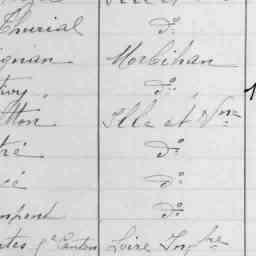 Thurial d°
ignan Morbihan
d°
tton Ille et Vne
tré d°
cé d°
mpont d°
tes 4e Canton Loire Infre